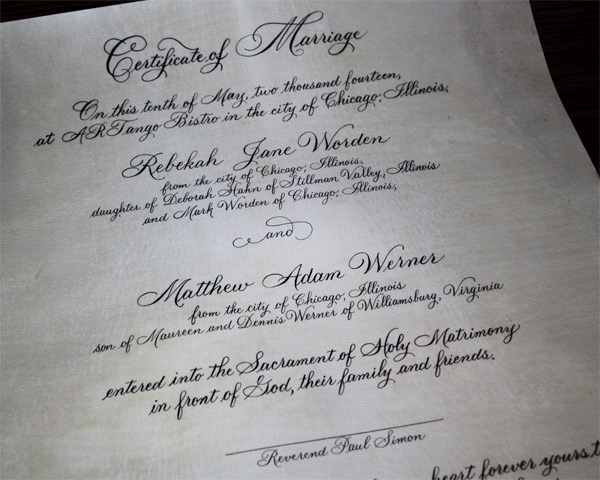 Certificate of Marriage
On this tenth of May, two thousand fourteen,
at ARTango Bistro in the city of Chicago, Illinois,
Rebekah Jane Worden
from the city of Chicago, Illinois,
daughter of Deborah Hahn of Stillman Valley, Illinois
and Mark Worden of Chicago, Illinois,
and
Matthew Adam Werner
from the city of Chicago, Illinois
son of Maureen and Dennis Werner of Williamsburg, Virginia
entered into the Sacrament of Holy Matrimony
in front of God, their family and friends.
Reverend Paul Simon
heart forever yours